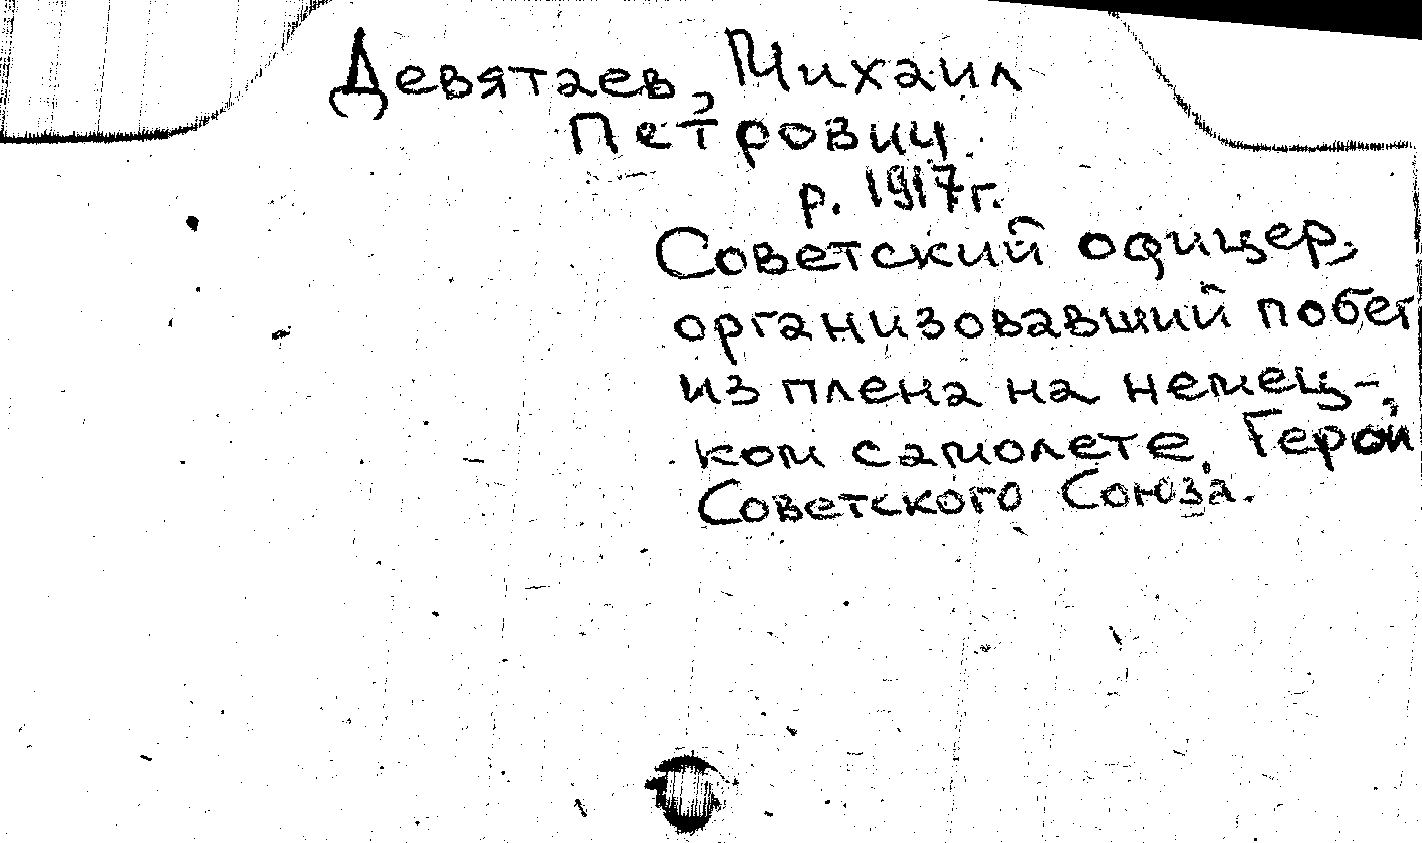 Девятаев, Михаил
Петрович
р. 1917г.
Советский офицер,
организовавший побег
из плена на немец-
ком самолете. Герой
Советского Союза.